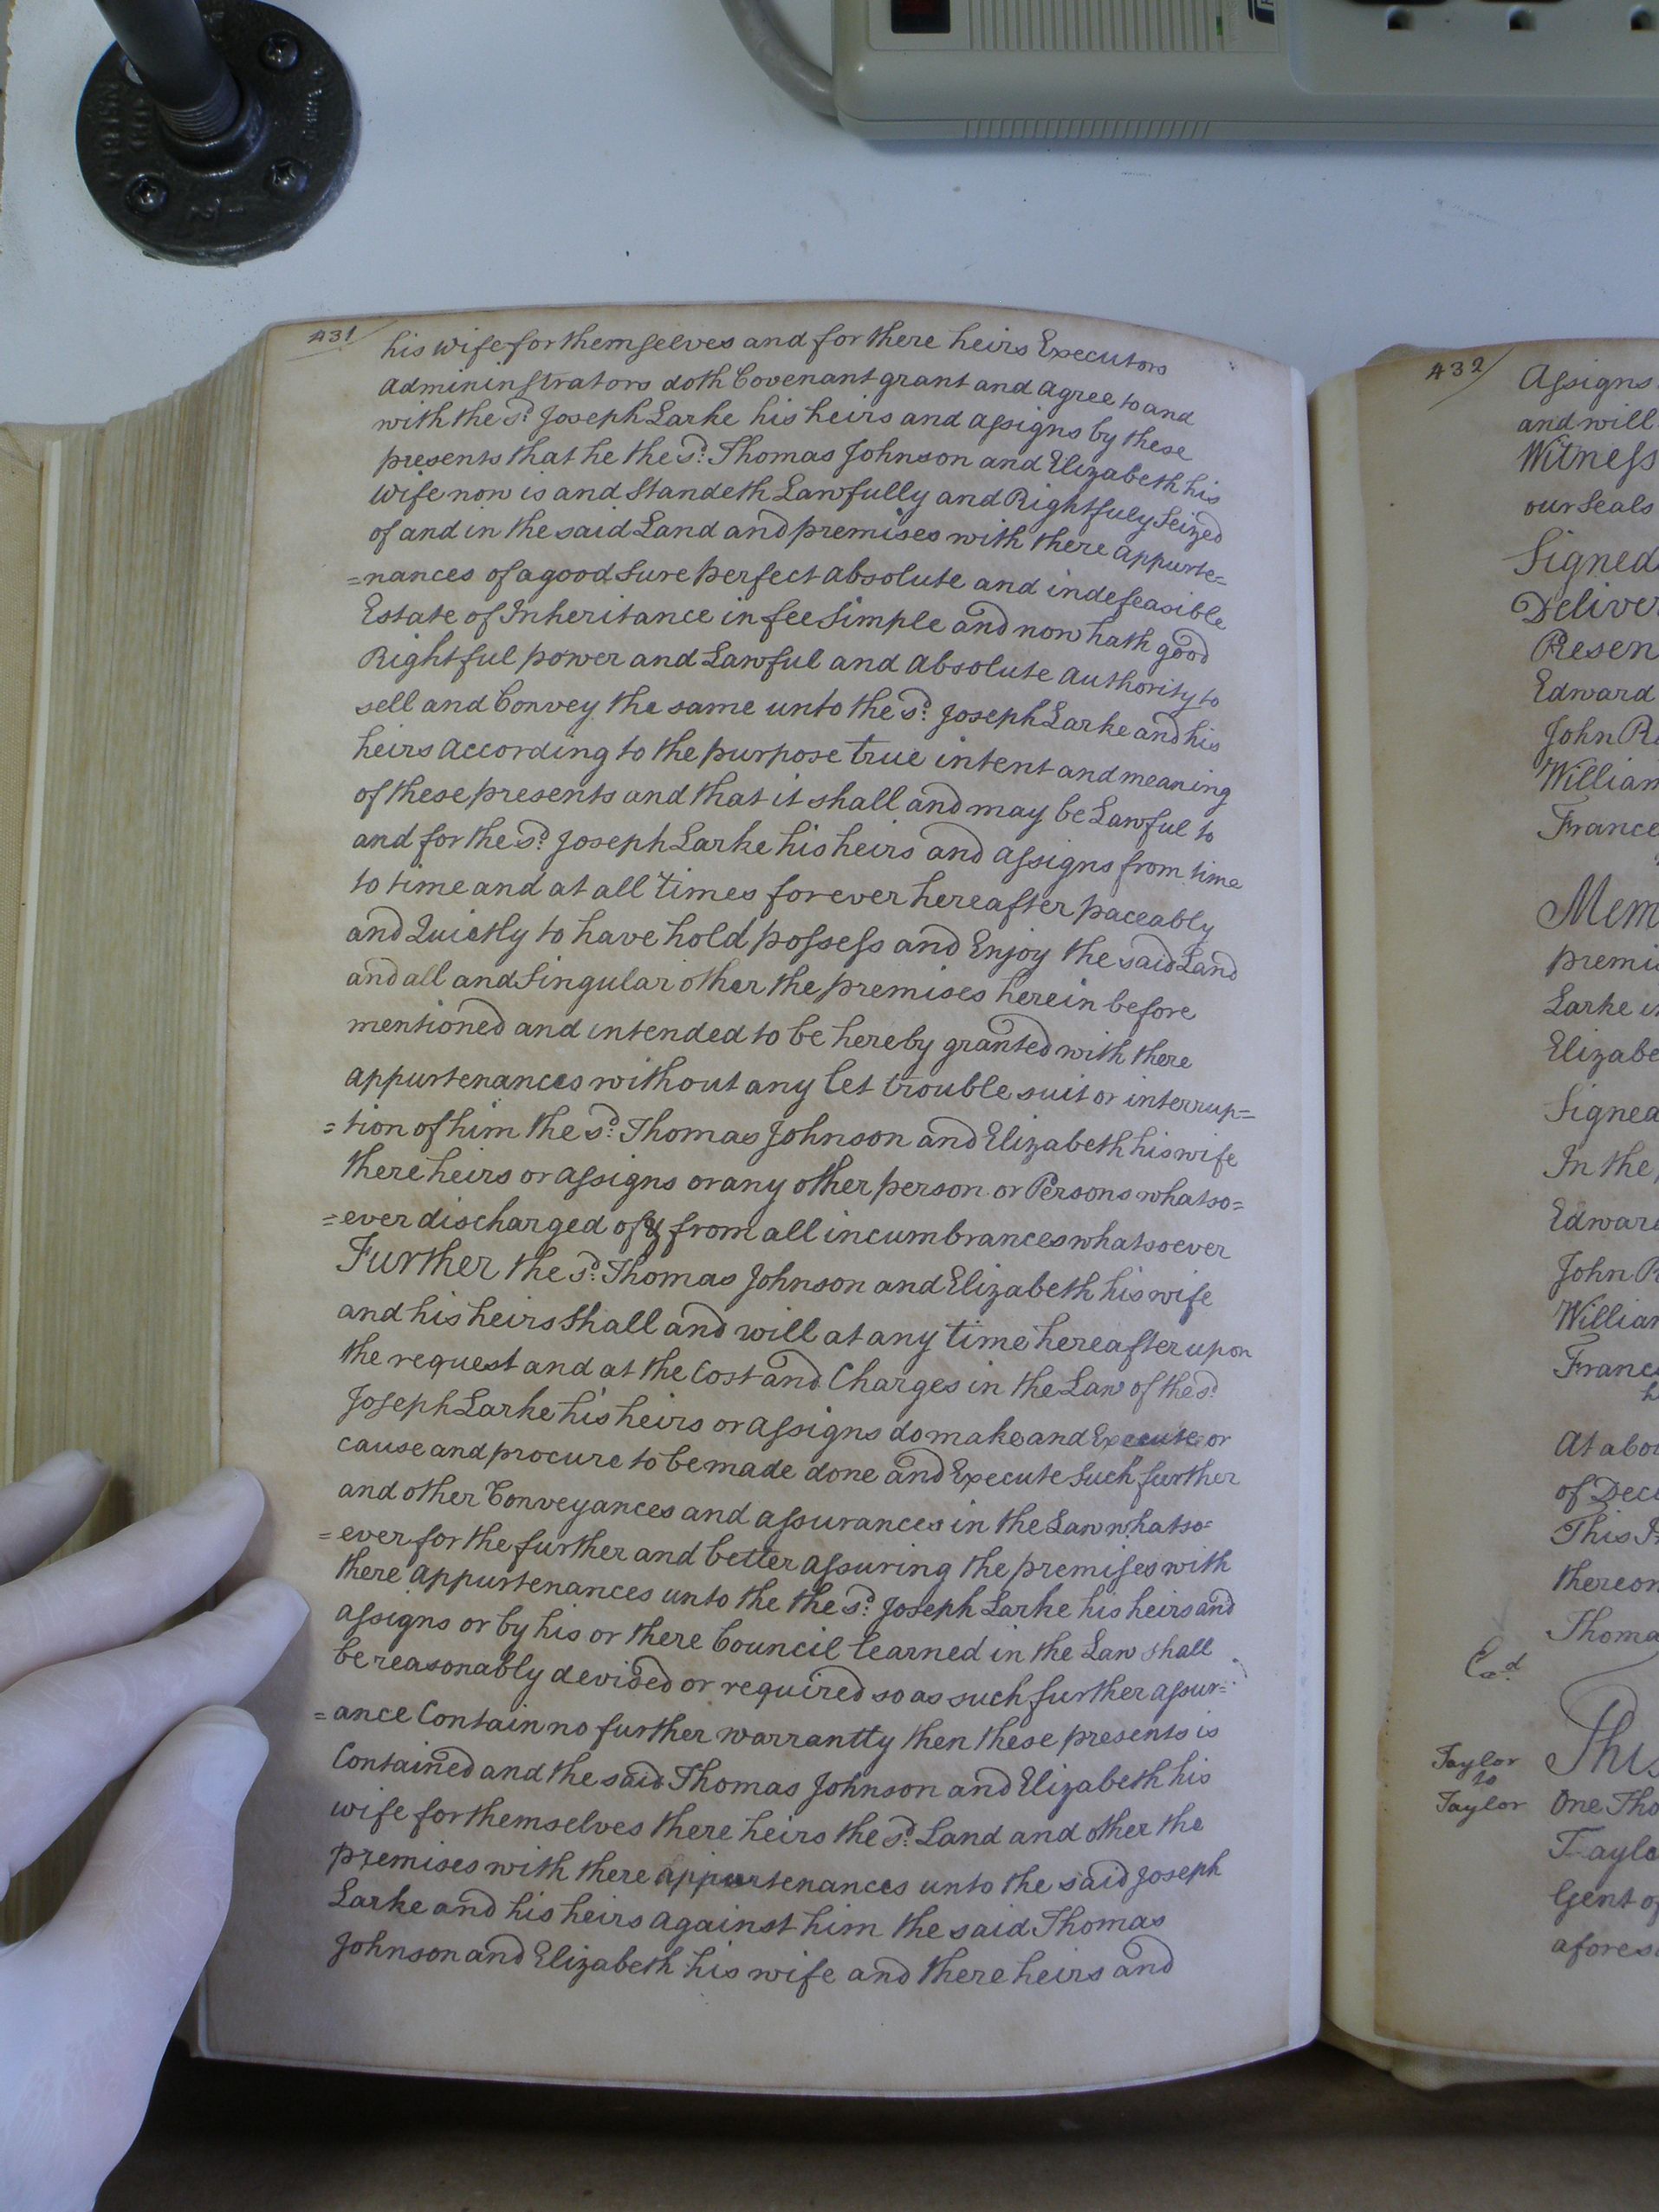 431
his wife for themselves and for there heirs Executors
Admininstrators doth Covenant grant and agree to and
with the sd: Joseph Larke his heirs and assigns by these
presents that he the sd: Thomas Johnson and Elizabeth his
wife now is and Standeth Lawfully and Rightfuly Seized
of and in the said Land and premises with there appurte=
=nances of a good Sure perfect absolute and indefeasible
Estate of Inheritance in fee Simple and now hath good
Rightful power and Lawful and absolute authority to
sell and Convey the same unto the sd: Joseph Larke and his
heirs according to the purpose true intent and meaning
of these presents and that it shall and may be Lawful to
and for the sd: Joseph Larke his heirs and assigns from time
to time and at all times forever hereafter paceably
and Quietly to have hold possess and Enjoy the said Land
and all and Singular other the premises herein before
mentioned and intended to be hereby granted with there
appurtenances without any let trouble suit or interrup=
=tion of him the sd: Thomas Johnson and Elizabeth his wife
there heirs or assigns or any other person or Persons whatso=
=ever discharged of & from all incumbrances whatsoever
Further the sd: Thomas Johnson and Elizabeth his wife
and his heirs Shall and will at any time hereafter upon
the request and at the Cost and Charges in the Law of the sd:
Joseph Larke his heirs or assigns do make and Execute or
cause and procure to be made done and Execute Such further
and other Conveyances and assurances in the Law whatso=
=ever for the further and better assuring the premises with
there appurtenances unto the the sd: Joseph Larke his heirs and
assigns or by his or there Council learned in the Law shall
be reasonably devided or required so as such further assur=
=ance Contain no further warrantty then these presents is
Contained and the said Thomas Johnson and Elizabeth his
wife for themselves there heirs the sd: Land and other the
premises with there appurtenances unto the said Joseph
Larke and his heirs against him the said Thomas
Johnson and Elizabeth his wife and there heirs and
432
Assigns
and will
Witness
our Seals
Signed
Deliver
Presen
Edward
John R
William
France
Mem
premi
Larke
Elizabe
Signed
In the
Edward
John R
William
France
At abou
of Dece
This
thereon
Thoma
Exd.
Taylor
to
Taylor
This
One Tho
Taylo
Gent of
afores